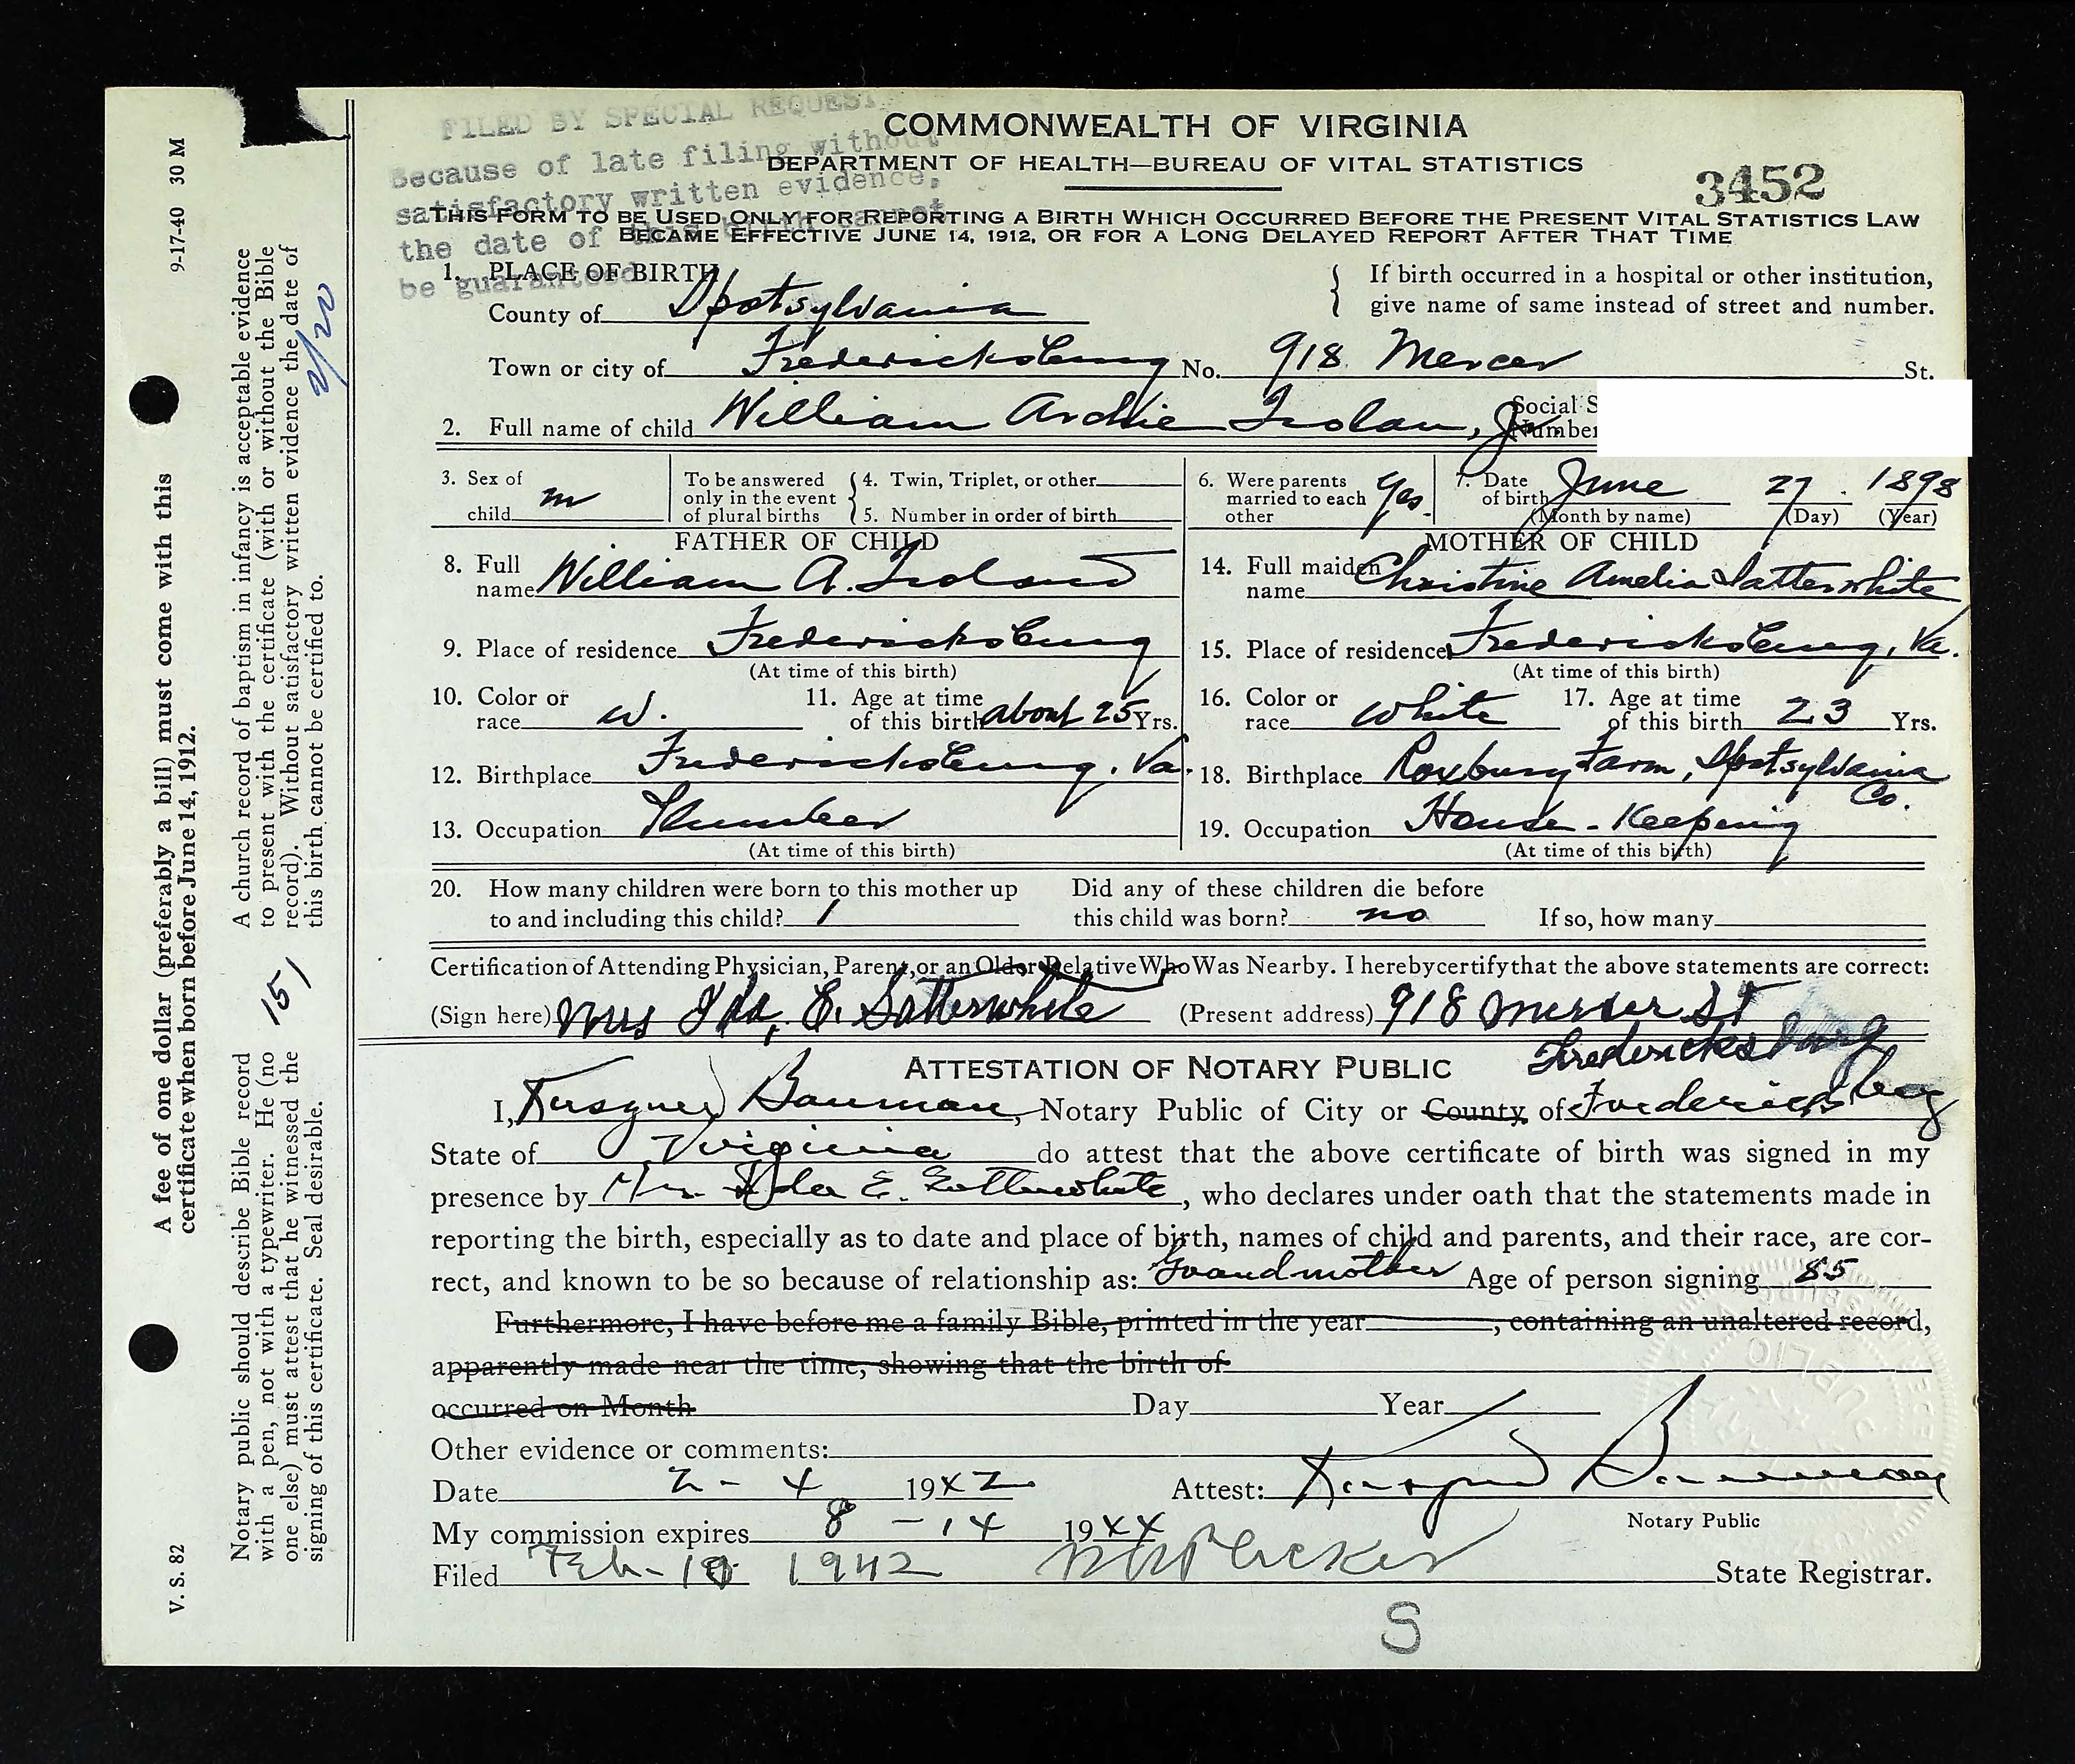 FILED BY SPECIAL REQUEST
Because of late filing without
satisfactory written evidence,
the date of this birth cannot
be guaranteed
COMMONWEALTH OF VIRGINIA
DEPARTMENT OF HEALTH—BUREAU OF VITAL STATISTICS
3452
THIS FORM TO BE USED ONLY FOR REPORTING A BIRTH WHICH OCCURRED BEFORE THE PRESENT VITAL STATISTICS LAW
BECAME EFFECTIVE JUNE 14, 1912, OR FOR A LONG DELAYED REPORT AFTER THAT TIME
1. PLACE OF BIRTH
If birth occurred in a hospital or other institution,
give name of same instead of street and number.
County of Spotsylvania
Town or city of Fredericksburg No. 918 Mercer St.
Social S
Number
2. Full name of child William Archie Jr.
3. Sex of child m
To be answered only in the event of plural births
4. Twin, Triplet, or other
5. Number in order of birth
6. Were parents married to each other Yes.
7. Date of birth June 27. 1898
(Month by name) (Day) (Year)
FATHER OF CHILD
8. Full name William A.
9. Place of residence Fredericksburg
(At time of this birth)
10. Color or race W.
11. Age at time of this birth about 25 Yrs.
12. Birthplace Fredericksburg, Va.
13. Occupation Plumber
(At time of this birth)
MOTHER OF CHILD
14. Full maiden name Christine Amelia Satterwhite
15. Place of residence Fredericksburg, Va.
(At time of this birth)
16. Color or race White
17. Age at time of this birth 23 Yrs.
18. Birthplace Roxbury Farm, Spotsylvania Co.
19. Occupation House-Keeping
(At time of this birth)
20. How many children were born to this mother up to and including this child? 1
Did any of these children die before this child was born? no
If so, how many
Certification of Attending Physician, Parent, or an Older Relative Who Was Nearby. I hereby certify that the above statements are correct:
(Sign here) Mrs Ida, E. Satterwhite (Present address) 918 Mercer St
Fredericksburg
ATTESTATION OF NOTARY PUBLIC
I, Bauman, Notary Public of City or County of Fredericksburg
State of Virginia do attest that the above certificate of birth was signed in my
presence by Mrs. Ida E. Satterwhite, who declares under oath that the statements made in
reporting the birth, especially as to date and place of birth, names of child and parents, and their race, are cor-
rect, and known to be so because of relationship as: Grandmother Age of person signing 85
Furthermore, I have before me a family Bible, printed in the year , containing an unaltered record,
apparently made near the time, showing that the birth of
occurred on Month Day Year
Other evidence or comments:
Date 2-4 1942 Attest: Bauman
Notary Public
My commission expires 8-14 1944
Filed Feb-10 1942 State Registrar.
S
9-17-40 30 M
A fee of one dollar (preferably a bill) must come with this
certificate when born before June 14, 1912.
V. S. 82
A church record of baptism in infancy is acceptable evidence
to present with the certificate (with or without the Bible
record). Without satisfactory written evidence the date of
this birth cannot be certified to.
2/20
151
Notary public should describe Bible record
with a pen, not with a typewriter. He (no
one else) must attest that he witnessed the
signing of this certificate. Seal desirable.